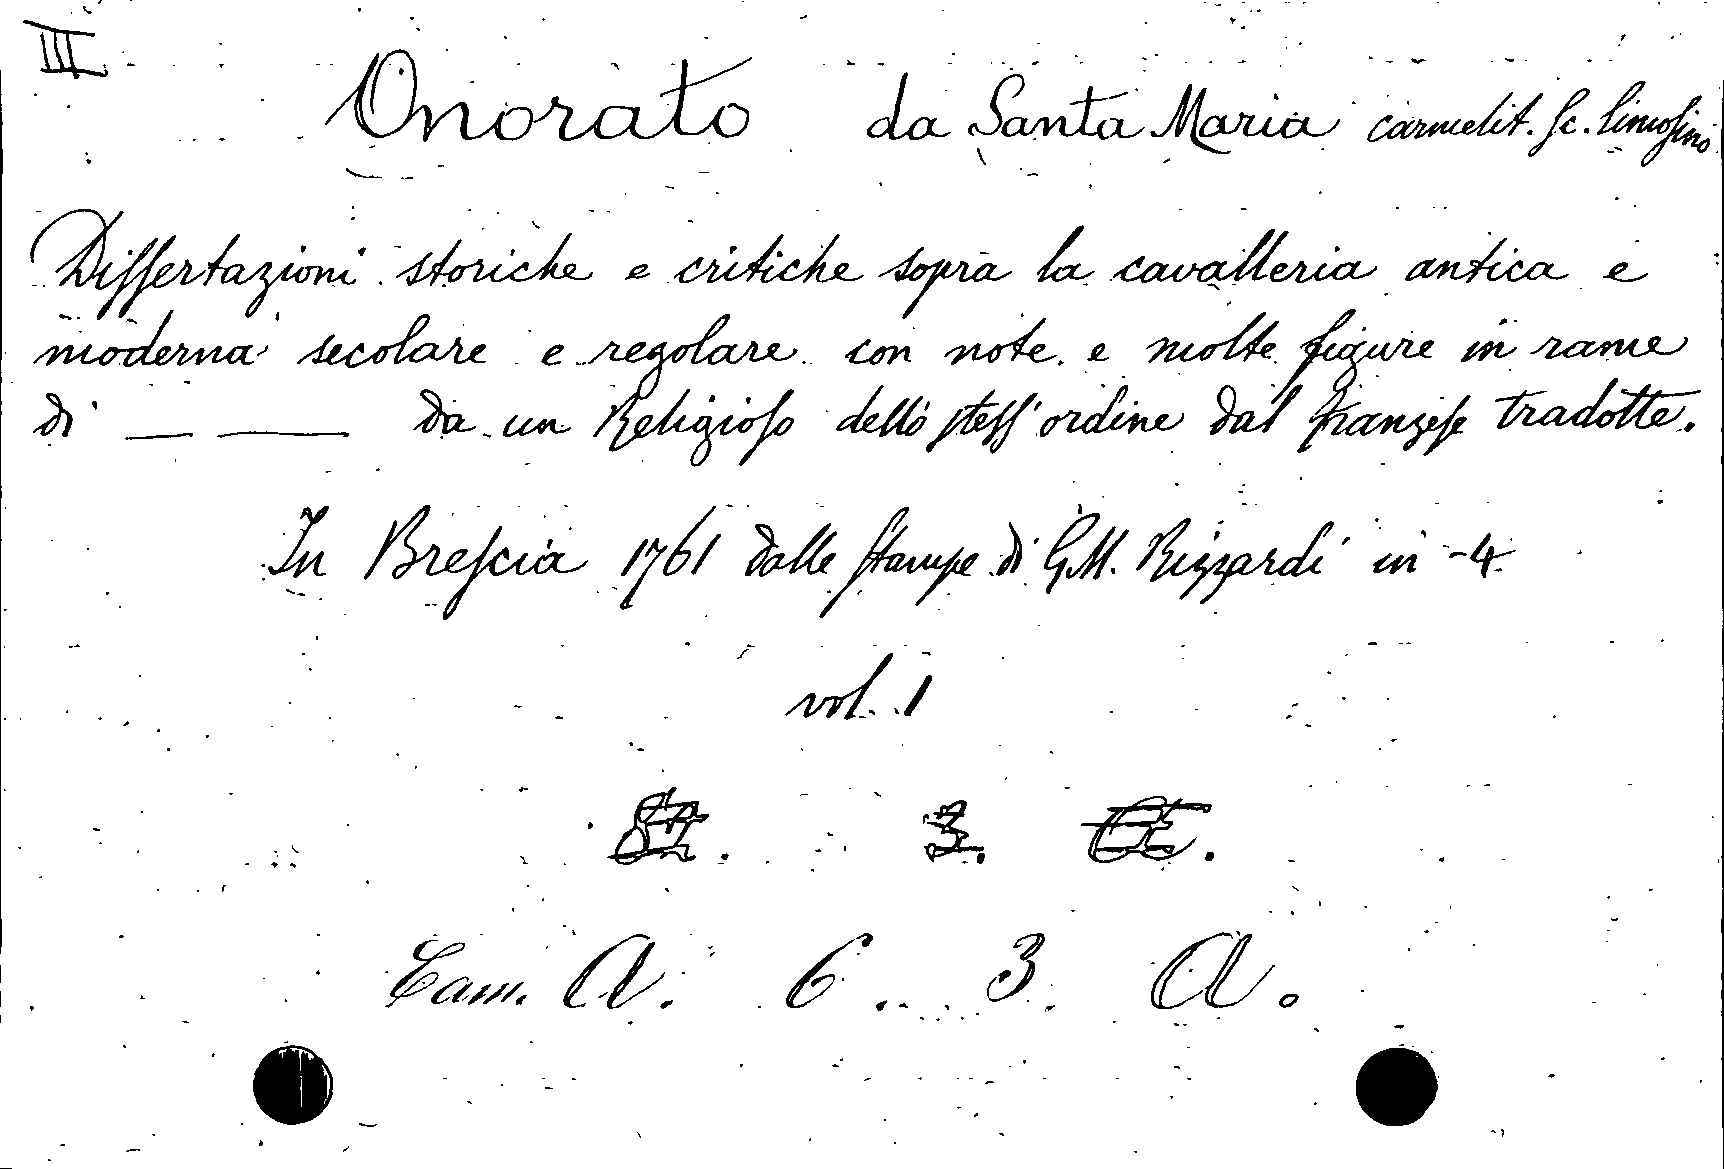 III
Onorato da Santa Maria carmelit. sc. limosino
Dissertazioni storiche e critiche sopra la cavalleria antica e
moderna secolare e regolare con note e molte figure in rame
di — — da un Religioso dello stess' ordine dal franzese tradotte.
In Brescia 1761 dalle stampe di G.M. Rizzardi in -4
vol. 1
3.
Cam. A. 6. 3. A.